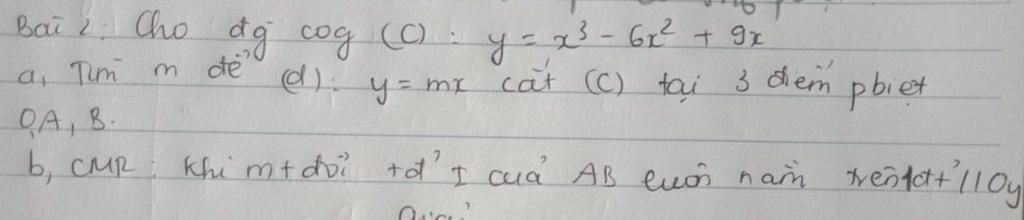 Bài 2: Cho đg cog (C): y = x³ - 6x² + 9x
a, Tìm m để (d): y = mx cắt (C) tại 3 điểm pbiệt
O,A, B.
b, CMR: Khi m + đổi + đ' I của AB luôn nằm trên 1đt+' // Oy